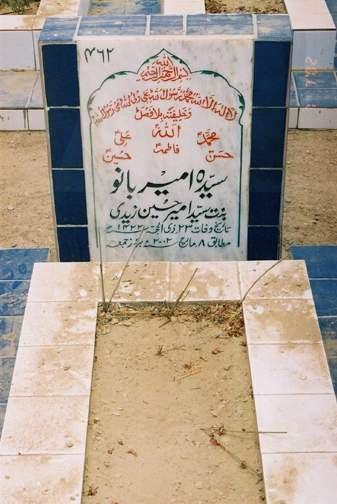 ۴۶۲
بسم اللہ الرحمن الرحیم
لا الہ الا اللہ محمد رسول اللہ علی ولی اللہ وصی رسول اللہ
وخلیفتہ بلا فصل
محمدؐ اللہ علیؑ
حسنؑ فاطمہؑ حسینؑ
سیدہ امیر بانو
بنت سید امیر حسین زیدی
تاریخ وفات ۲۳ ذی الحجہ ۱۴۲۲ھ
مطابق ۸ مارچ ۲۰۰۲ء بروز جمعہ